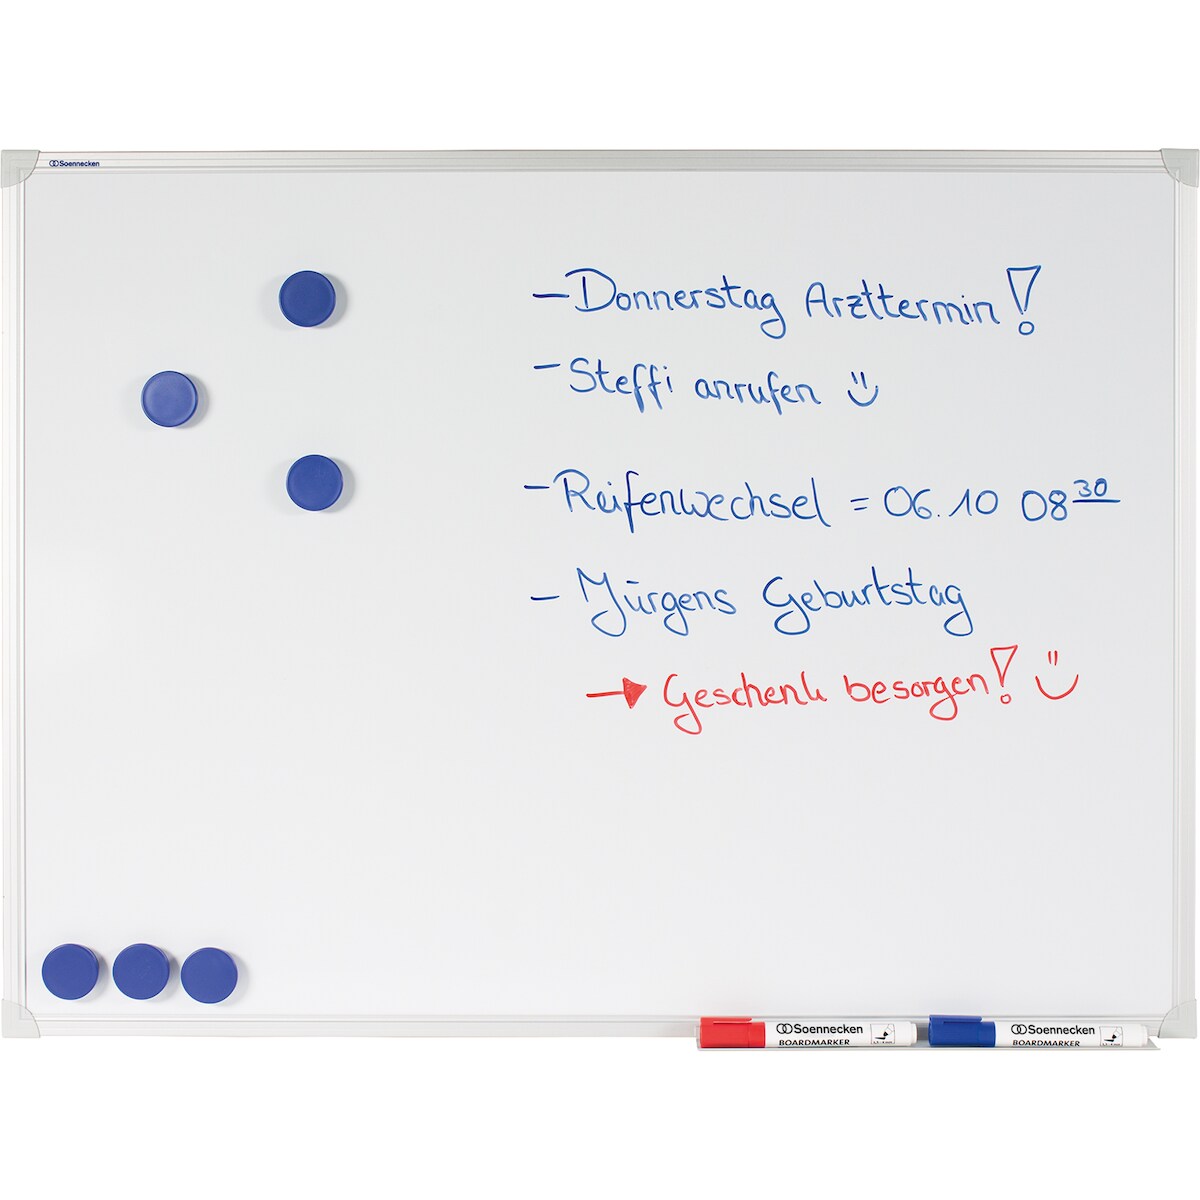 Soennecken
- Donnerstag Arzttermin!
- Steffi anrufen
- Reifenwechsel = 06.10 08³⁰
- Jürgens Geburtstag
→ Geschenk besorgen!
Soennecken
BOARDMARKER
Soennecken
BOARDMARKER